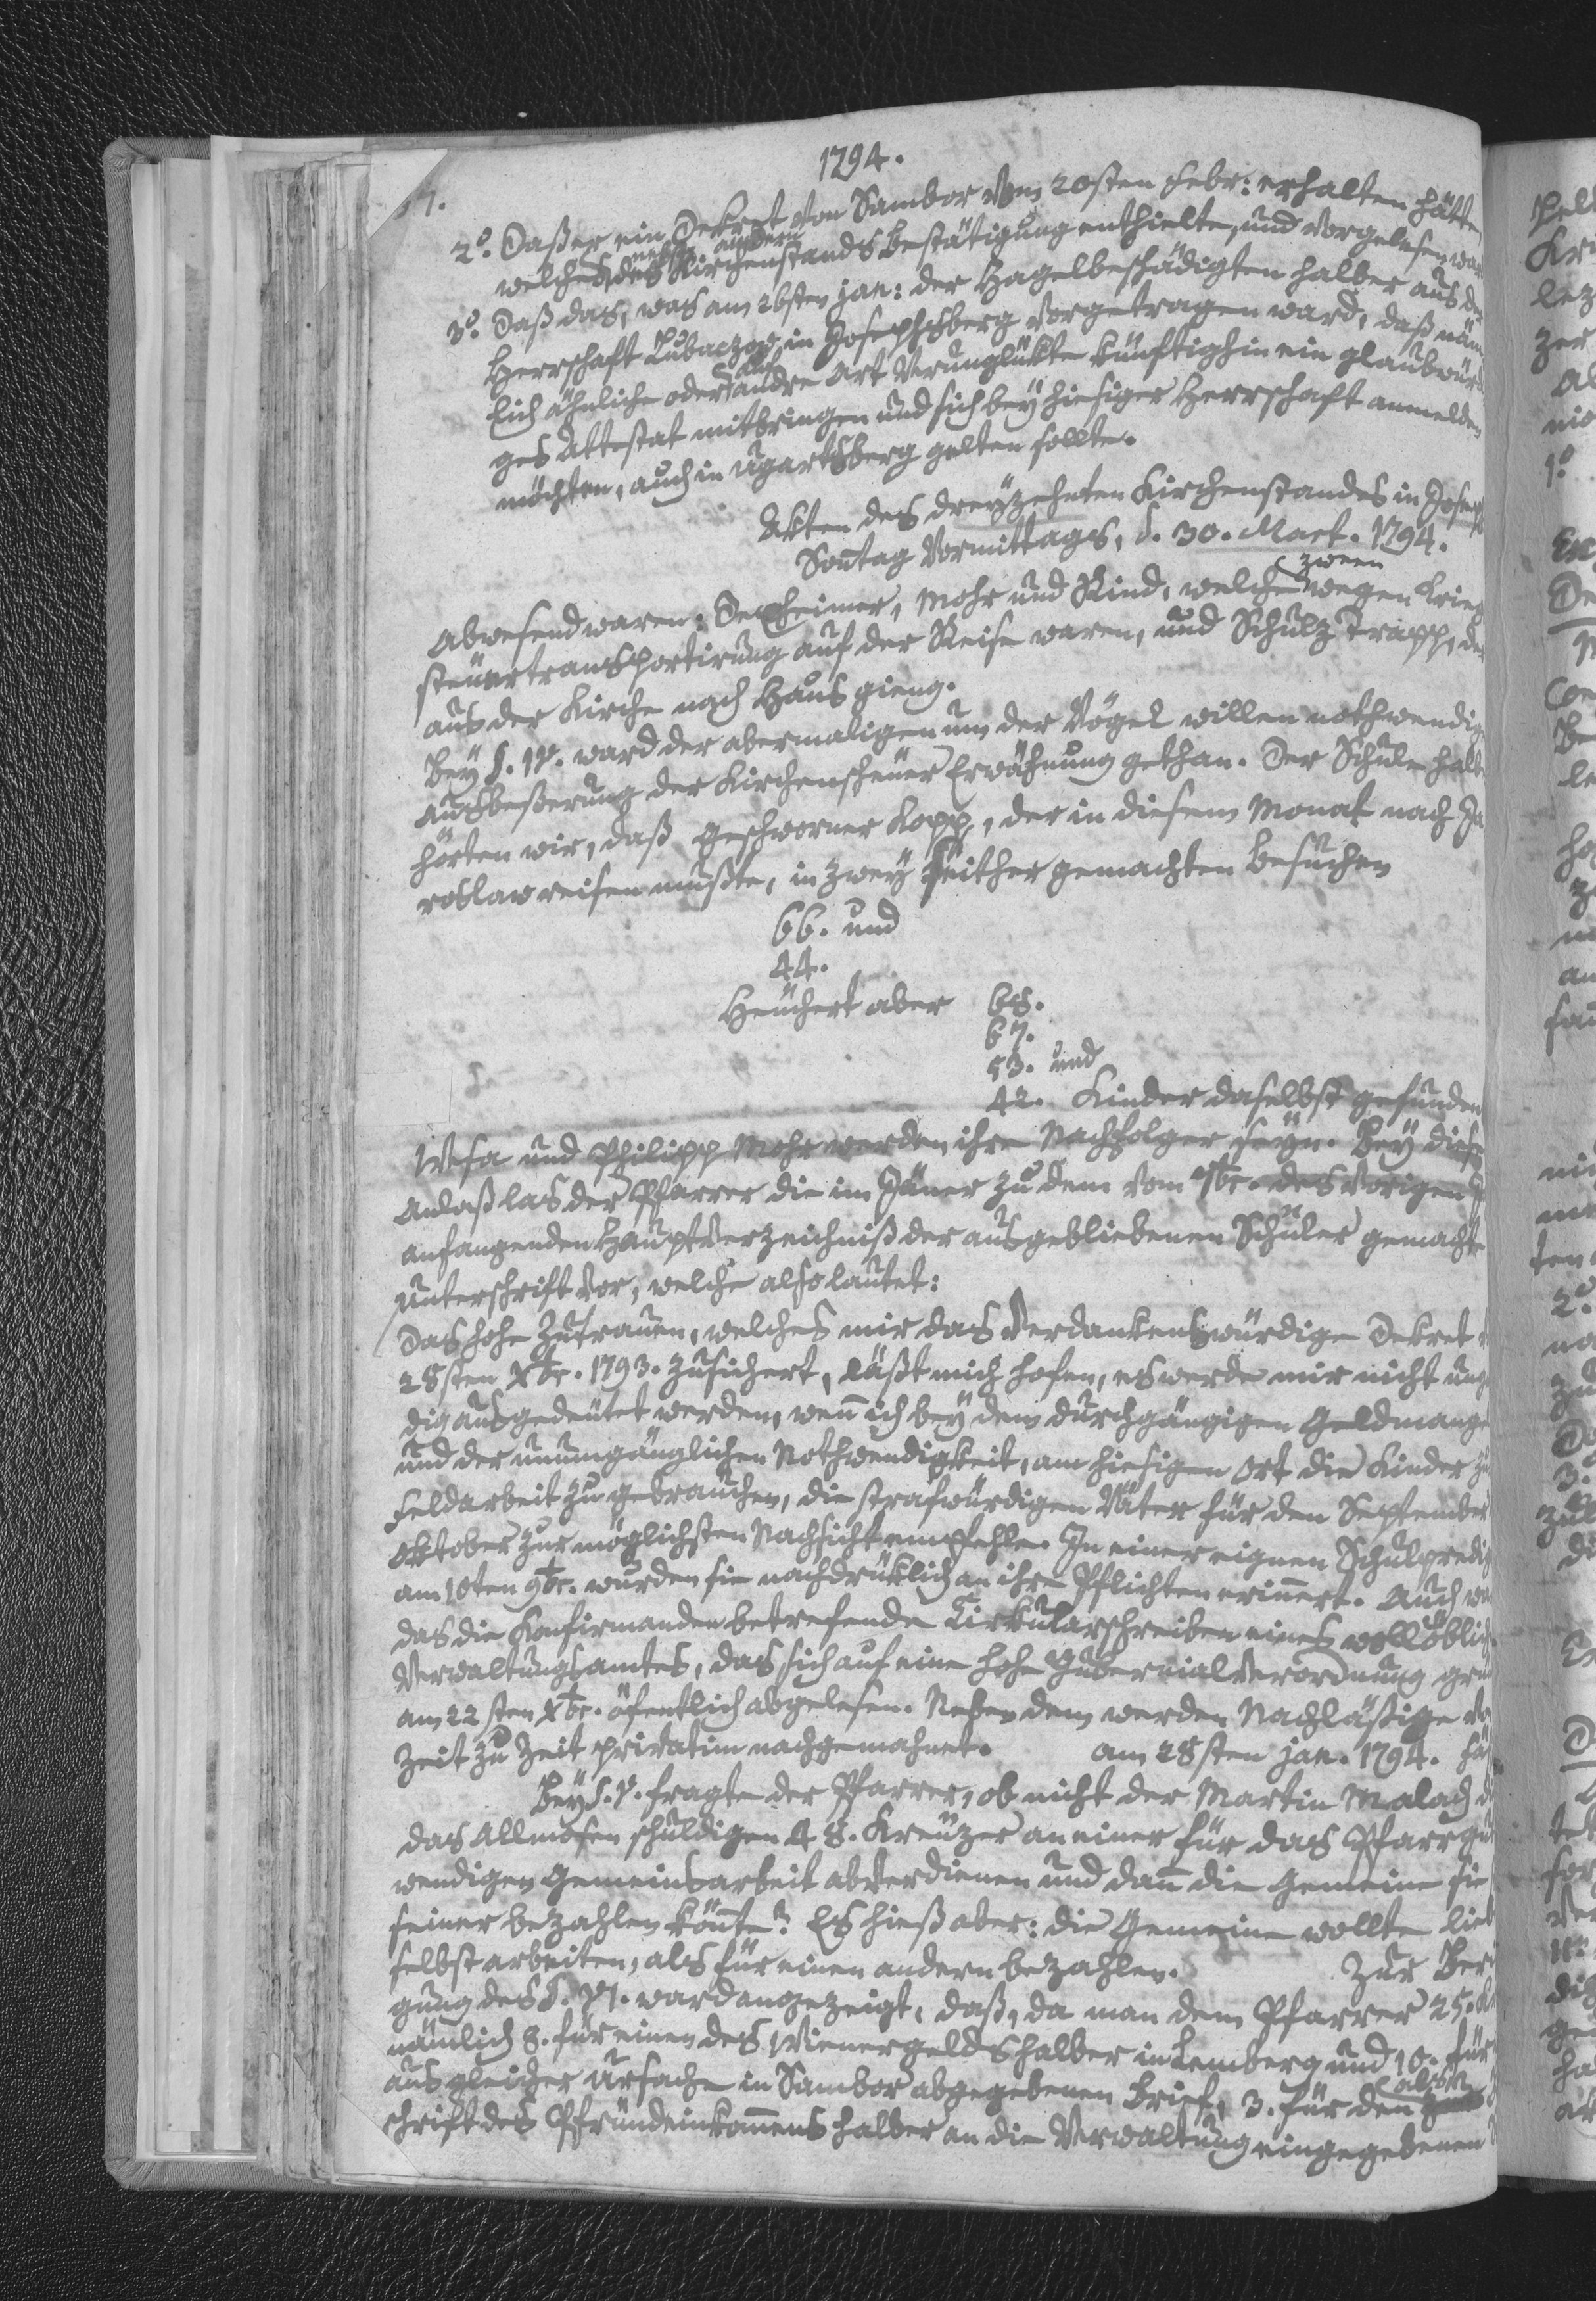 1794.
57.
2°. Daß er ein Dekret von Sambor vom 20sten Febr: erhalten hätte,
welches nebst andern des Kirchenstands Bestätigung enthielte, und vorgelesen war
3°. Daß das, was am 26sten Jan: der Hagelbeschädigten halber aus der
Herrschaft Lubaczow in Josephsberg vorgetragen ward, daß näm
lich ähnliche oder auf andre Art Verunglükte künftighin ein glaubwürdi
ges Attestat mitbringen und sich bey hiesiger Herrschaft anmelden
möchten, auch in Ugartsberg gelten sollte.
Akten des dreyzehnten Kirchenstandes in Joseph
Sontag Vormittags, d. 30. Mart. 1794.
Abwesend waren: Dexheimer, Mohr und Rind, welche zween wegen Krieg
steuertransportirung auf der Reise waren, und Schulz Trapp, der
aus der Kirche nach Haus gieng.
Bey §. IV. ward der abermaligen um der Vögel willen nothwendig
Ausbeßerung der Kirchenscheuer Erwähnung gethan. Der Schule halb
hörten wir, daß Geschworner Kopp, der in diesem Monat nach Ja
roslaw reisen mußte, in zwey seither gemachten Besuchen
66. und
44.
Heuchert aber 68.
67.
53. und
42. Kinder daselbst gefunden
Wesa und Philipp Mohr werden ihre Nachfolger seyn. Bey diese
Anlaß las der Pfarrer die im Jäner zu dem vom 7br. des vorigen J
anfangenden Hauptverzeichniß der ausgebliebenen Schüler gemachte
Unterschrift vor, welche also lautet:
Das hohe Zutrauen, welches mir das Verdankenswürdige Dekret
28sten Xbr. 1793. zusichert, läßt mich hofen, es werde mir nicht ung
dig ausgedeutet werden, wenn ich bey dem durchgängigen Geldmange
und der unumgänglichen Nothwendigkeit, am hiesigen Ort die Kinder zu
Feldarbeit zu gebrauchen, die strafwürdigen Väter für den September
Oktober zur möglichsten Nachsicht empfehle. In einer eignen Schulpredig
am 10ten 9br. wurden sie nachdrüklich an ihre Pflichten erinnert. Auch war
das die Konfirmanden betrefende Cirkularschreiben eines wollöblich
Verwaltungsamtes, das sich auf eine hohe Gubernialverordnung grün
am 22sten Xbr. öfentlich abgelesen. Neben dem werden Nachläßige von
Zeit zu Zeit privatim nachgemahnet. Am 28sten Jan. 1794.
Bey §. V. fragte der Pfarrer, ob nicht der Martin Malach d
das Allmosen schuldigen 48. Kreuzer an einer für das Pfarrgu
wendigen Gemeinsarbeit abverdienen und dann die Gemeine sie
seiner bezahlen könnte? Es hieß aber: die Gemeine wollte lieb
selbst arbeiten, als für einen andern bezahlen. Zur Ber
gung des §. VI. ward angezeigt, daß, da man dem Pfarrer 25.
nämlich 8. für einen des Wienergelds halber in Lemberg und 10. für
aus gleicher Ursache in Sambor abgegebenen Brief, 3. für den
schrift des Pfrundeinkommens halber an die Verwaltung eingegebenen